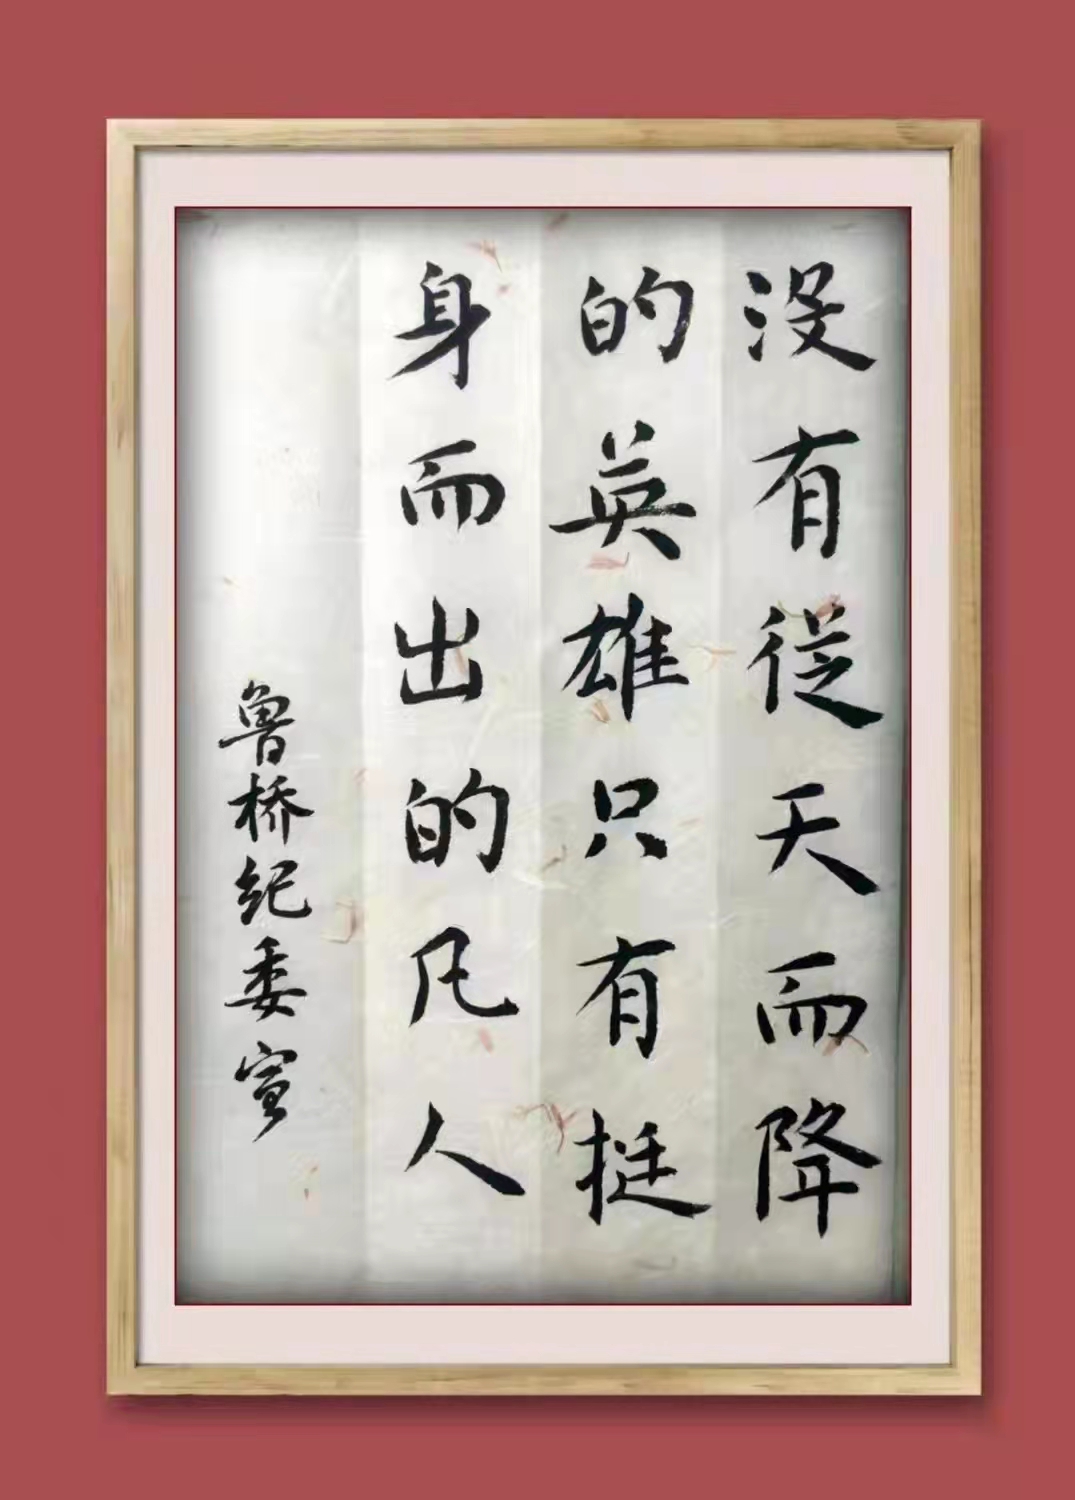 没有従天而降
的英雄只有挺
身而出的凡人
鲁桥纪委宣